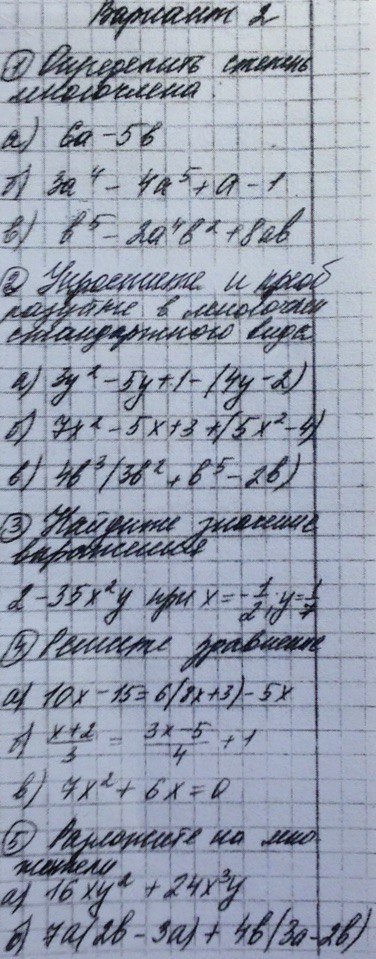 Вариант 2
① Определить степень
многочлена
а) 6a - 5b
б) 3a⁴ - 4a⁵ + a - 1
в) b⁵ - 2a⁴b² + 8ab
② Упростите и преоб
разуйте в многочлен
стандартного вида
а) 3y² - 5y + 1 - (4y - 2)
б) 7x² - 5x + 3 + (5x² - 4)
в) 4b³(3b² + b⁵ - 2b)
③ Найдите значение
выражения
2 - 35x²y при x = -1/2, y = 1/7
④ Решите уравнение
а) 10x - 15 = 6(8x + 3) - 5x
б) (x+2)/3 = (3x-5)/4 + 1
в) 7x² + 6x = 0
⑤ Разложите на мно
жители
а) 16xy² + 24x³y
б) 7a(2b - 3a) + 4b(3a - 2b)